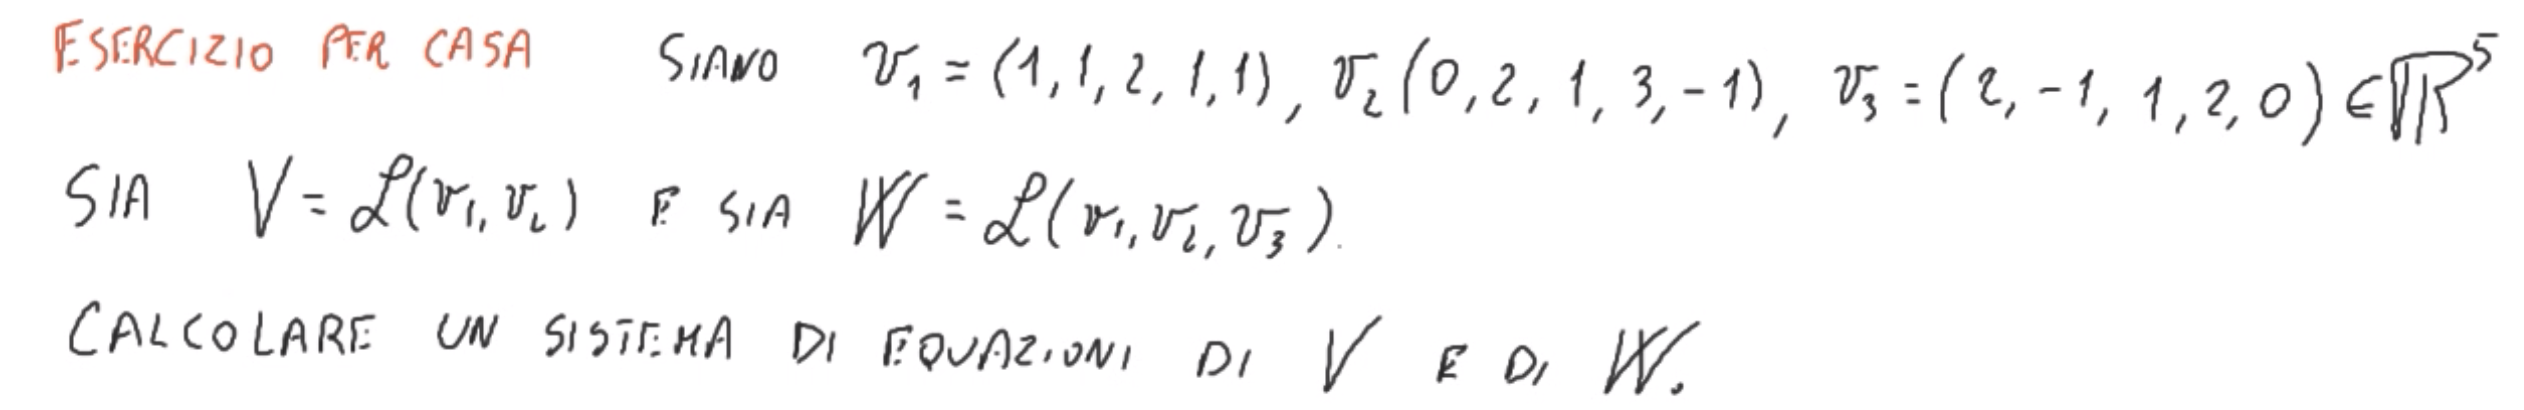 ESERCIZIO PER CASA SIANO v₁ = (1, 1, 2, 1, 1), v₂ (0, 2, 1, 3, -1), v₃ = (2, -1, 1, 2, 0) ∈ ℝ⁵
SIA V = ℒ(v₁, v₂) E SIA W = ℒ(v₁, v₂, v₃).
CALCOLARE UN SISTEMA DI EQUAZIONI DI V E DI W.